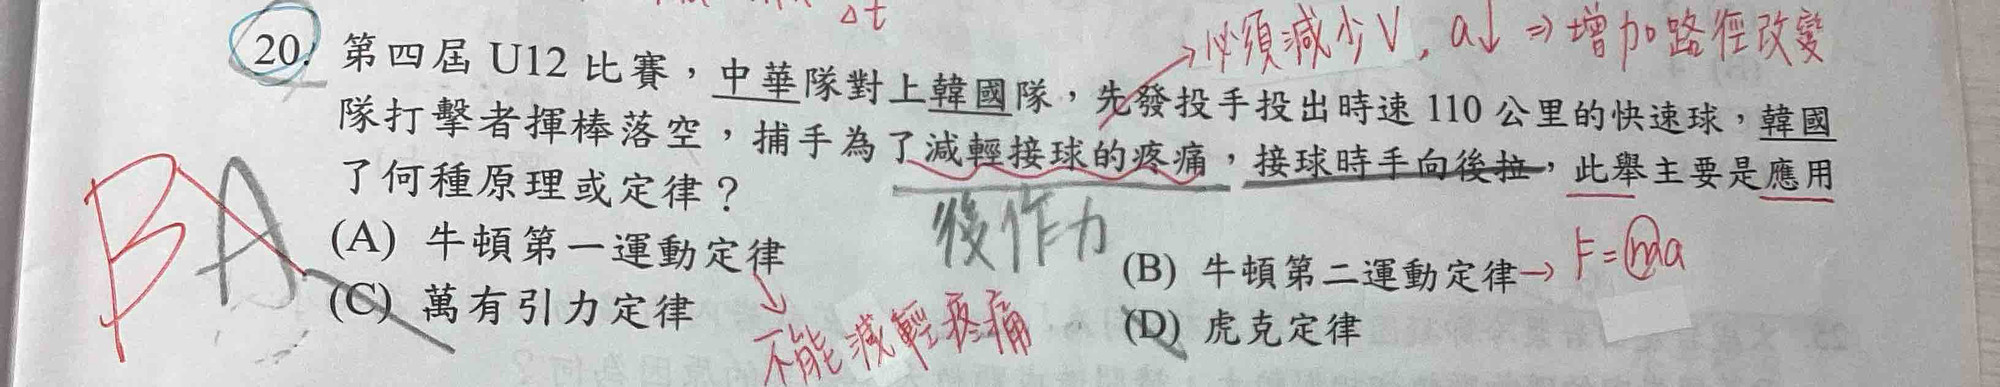 Δt
必須減少V，a↓ ⇒ 增加路徑改變
20. 第四屆 U12 比賽，中華隊對上韓國隊，先發投手投出時速 110 公里的快速球，韓國
隊打擊者揮棒落空，捕手為了減輕接球的疼痛，接球時手向後拉，此舉主要是應用
了何種原理或定律？
後作力
BA
(A) 牛頓第一運動定律
(B) 牛頓第二運動定律→ F=ma
(C) 萬有引力定律
不能減輕疼痛
(D) 虎克定律